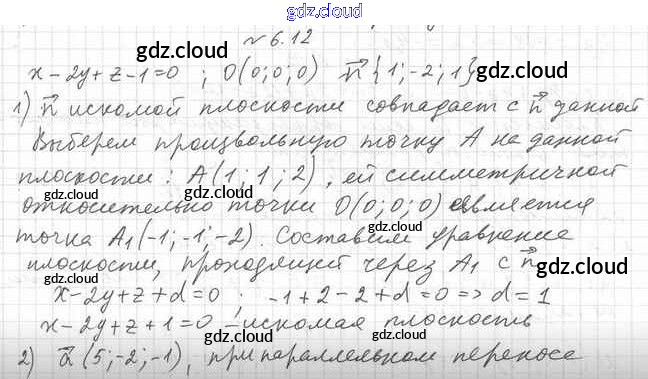 gdz.cloud
№ 6.12
gdz.cloud gdz.cloud
x - 2y + z - 1 = 0 ; O(0;0;0) n⃗{1;-2;1}
1) n⃗ искомой плоскости совпадает с n⃗ данной
Выберем произвольную точку A на данной
плоскости: A(1;1;2), ей симметричной
gdz.cloud gdz.cloud
относительно точки O(0;0;0) является
точка A₁(-1;-1;-2). Составим уравнение
плоскости, проходящей через A₁ с n⃗
gdz.cloud gdz.cloud
x-2y+z+d=0 ; -1+2-2+d=0 => d=1
x-2y+z+1=0 - искомая плоскость
gdz.cloud gdz.cloud
2) a⃗(5;-2;-1), при параллельном переносе